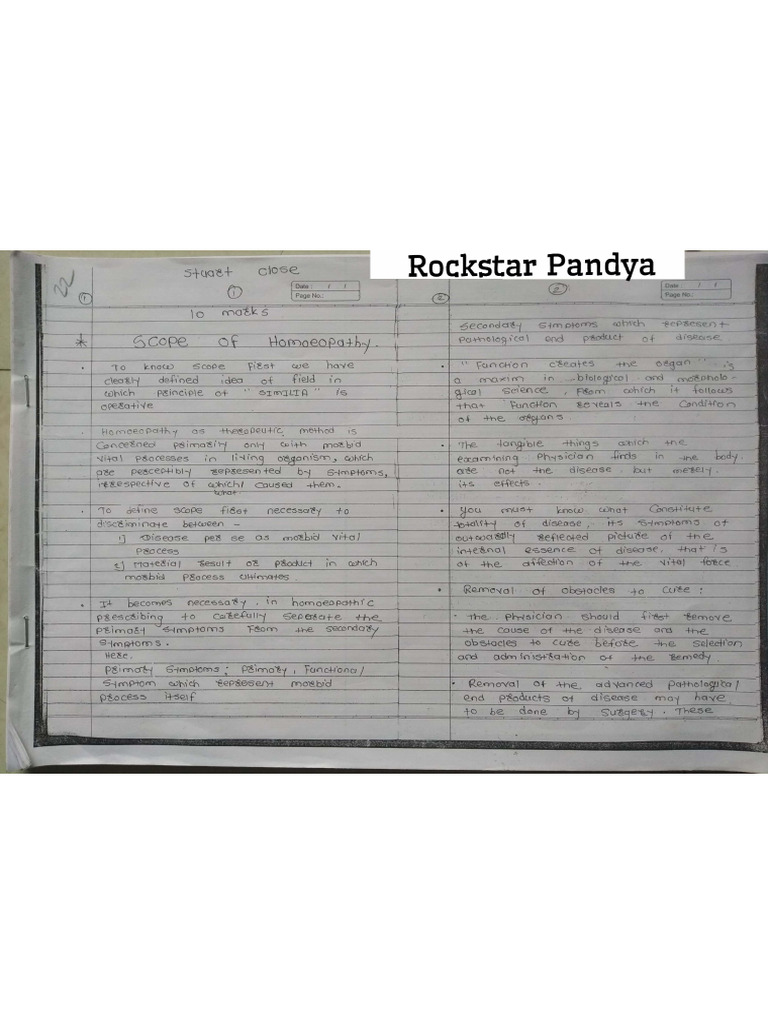 Rockstar Pandya
22
Stuart Close
①
①
Date : / /
Page No.:
10 marks
* Scope of Homoeopathy.
. To know scope first we have
clearly defined idea of field in
which principle of "SIMILIA" is
operative
. Homoeopathy as therapeutic method is
concerned primarily only with morbid
vital processes in living organism, which
are perceptbly represented by symptoms,
irrespective of which/ caused them.
what
. To define scope first necessary to
discriminate between -
1) Disease per se as morbid vital
process
2) Material result or product in which
morbid process ultimates.
. It becomes necessary, in homoeopathic
prescribing to carefully seperate the
primary symptoms from the secondary
symptoms.
Here,
Primary symptoms: Primary, Functional
symptom which represent morbid
process itself
②
②
Date : / /
Page No.:
secondary symptoms which represent
pathological end product of disease.
. "Function creates the organ" is
a maxim in biological and morpholo-
gical science, from which it follows
that Function reveals the condition
of the organs.
. The tangible things which the
examining Physician finds in the body.
are not the disease but merely.
its effects.
. You must know what constitute
totality of disease, its symptoms of
outwardly reflected picture of the
internal essence of disease, that is
of the affection of the vital force.
. Removal of obstacles to cure :
. The Physician should first remove
the cause of the disease and the
obstacles to cure before the selection
and administration of the remedy.
. Removal of the advanced pathological
end products of disease may have
to be done by surgery. These